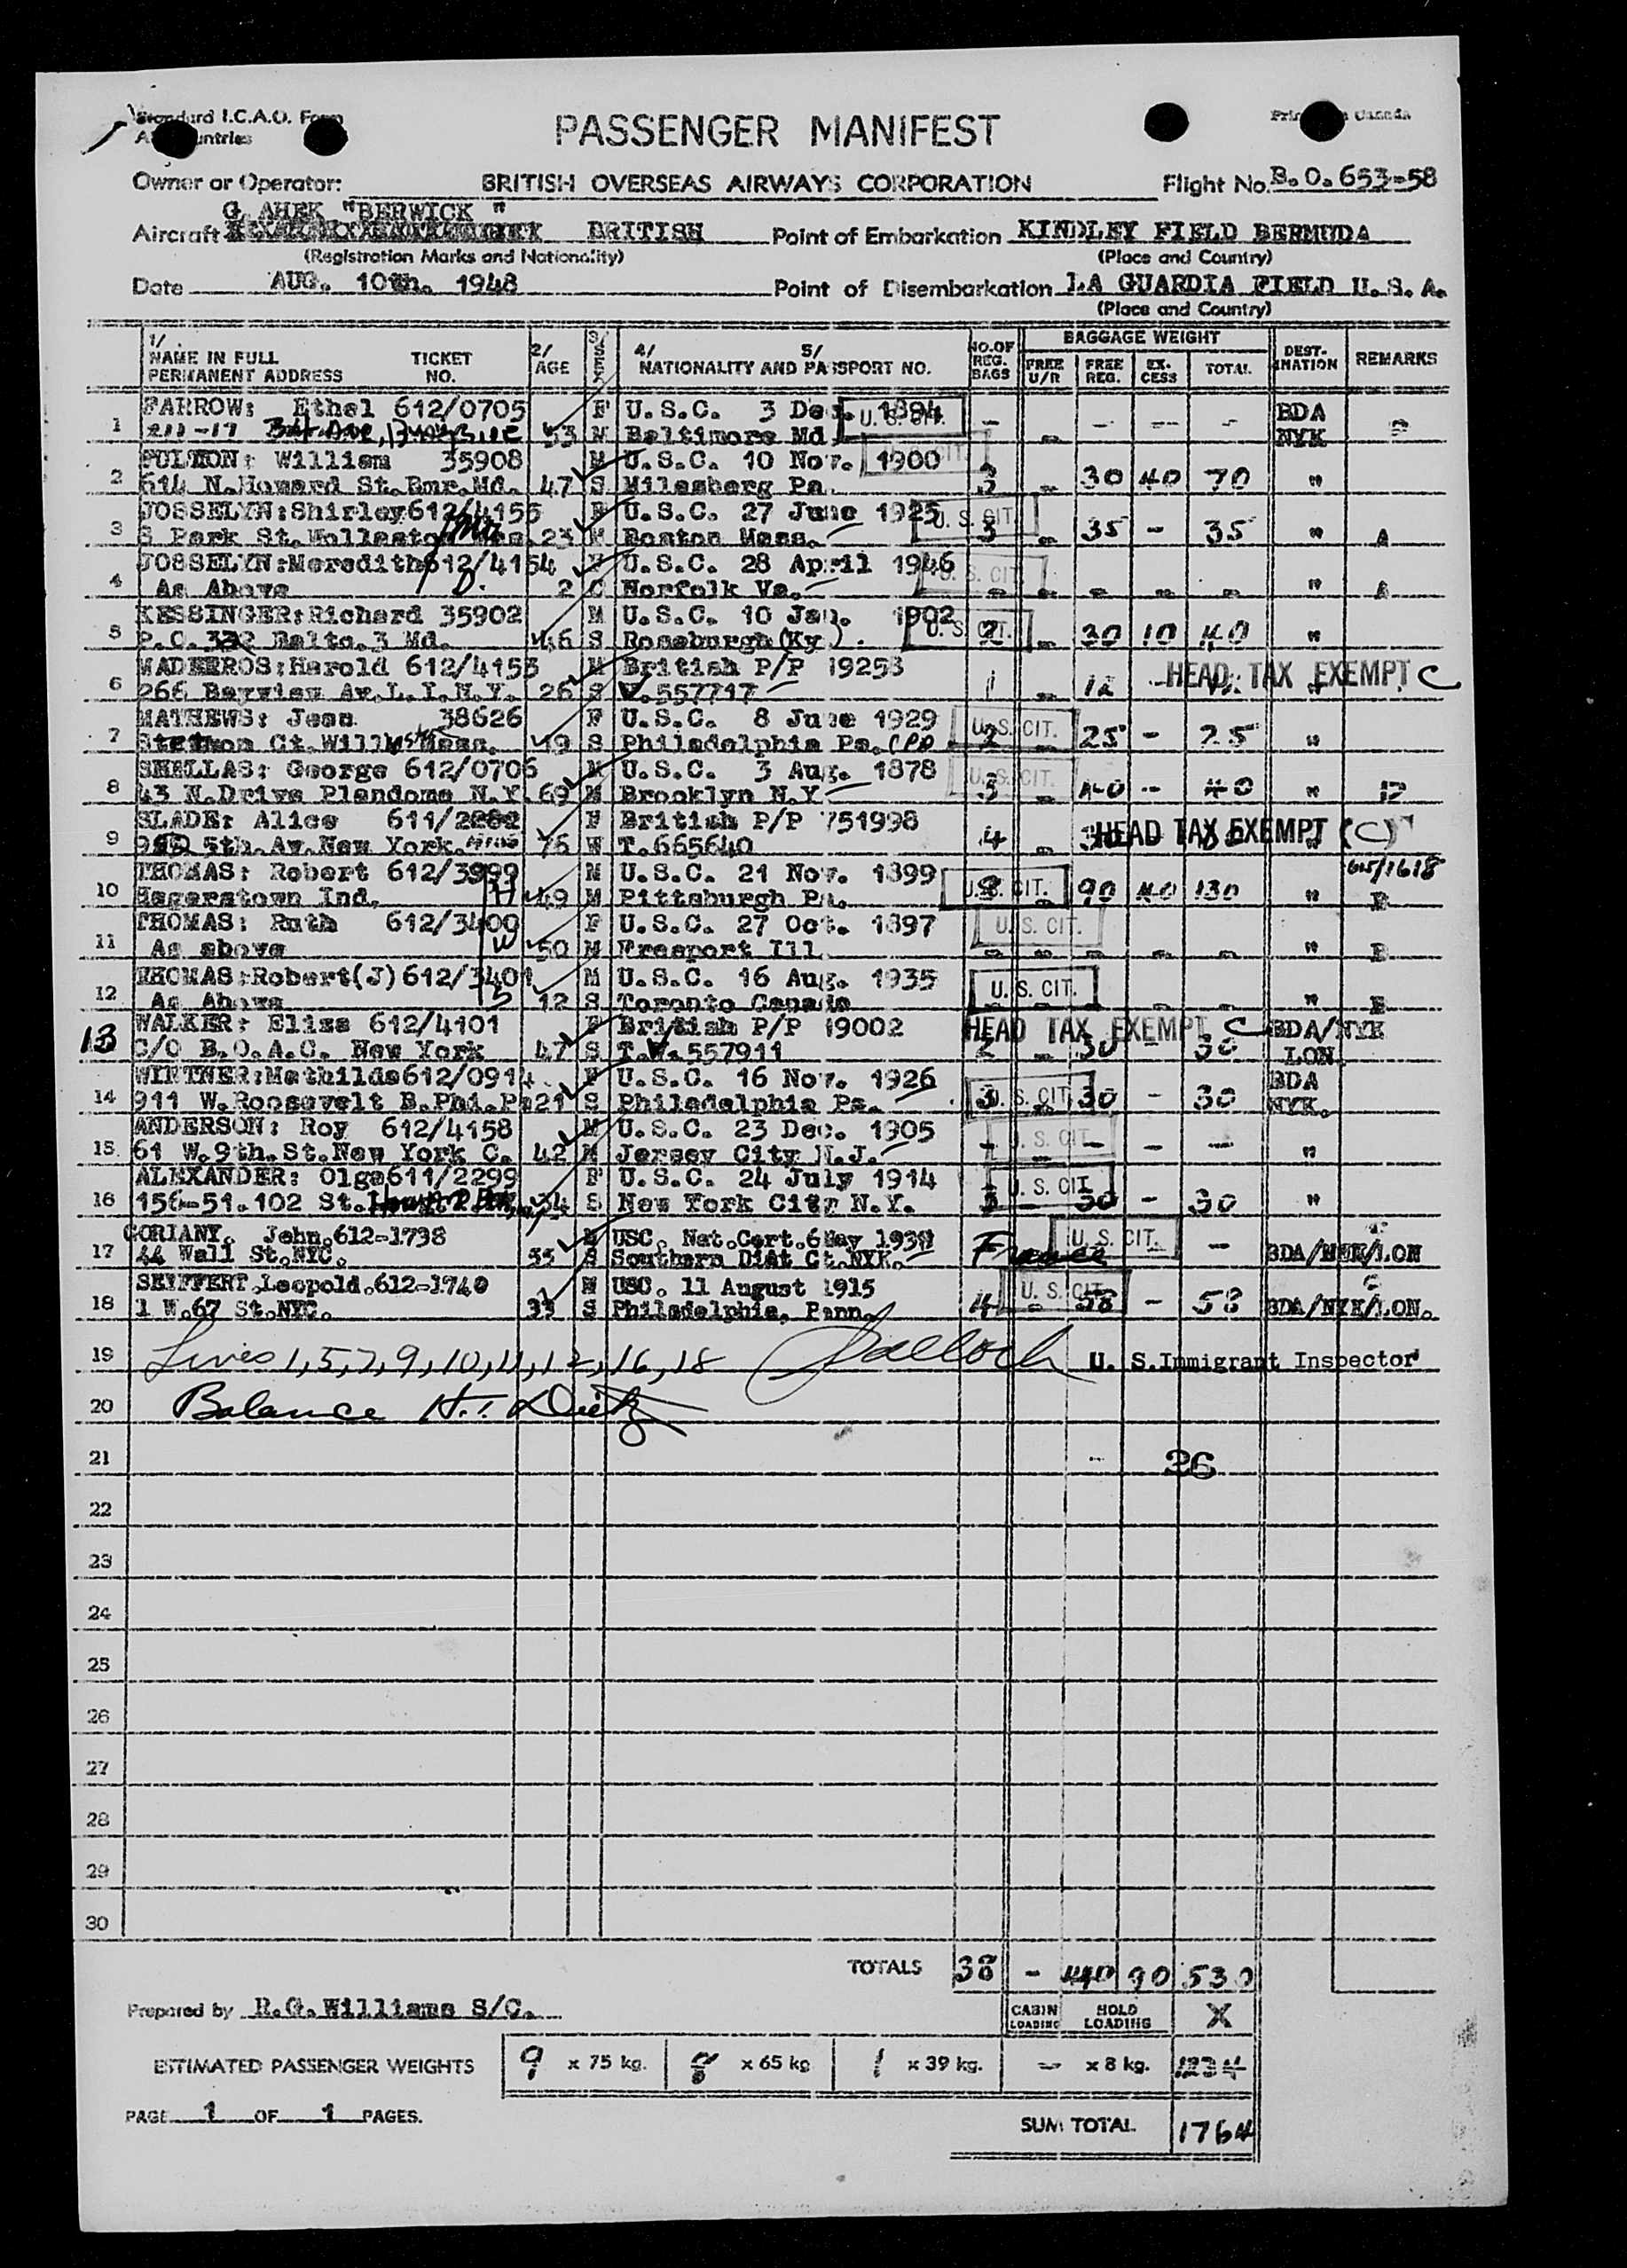 Standard I.C.A.O. Form
PASSENGER MANIFEST
Owner or Operator: BRITISH OVERSEAS AIRWAYS CORPORATION Flight No. B.O. 653-58
G. AHEK "BERWICK"
Aircraft BRITISH Point of Embarkation KINDLEY FIELD BERMUDA
(Registration Marks and Nationality) (Place and Country)
Date AUG. 10th. 1948 Point of Disembarkation LA GUARDIA FIELD U.S.A.
(Place and Country)
1/ NAME IN FULL PERMANENT ADDRESS TICKET NO. 2/ AGE 3/ SEX 4/ 5/ NATIONALITY AND PASSPORT NO. NO. OF REG. BAGS BAGGAGE WEIGHT FREE U/R FREE REG. EX-CESS TOTAL DEST-INATION REMARKS
1 FARROW: Ethel 612/0705 F U.S.C. 3 Dec. 1894 U.S. CIT. BDA
53 M Baltimore Md. NYK
2 FULTON: William 35908 M U.S.C. 10 Nov. 1900
614 N.Howard St.Bmr.Md. 47 S Milesberg Pa. 3 - 30 40 70 "
3 JOSSELYN:Shirley 612/4155 F U.S.C. 27 June 1925 U.S. CIT.
8 Park St. 23 M Boston Mass. 3 - 35 - 35 " A
4 JOSSELYN:Meredith 612/4154 F U.S.C. 28 April 1946 U.S. CIT.
As Above D. 2 C Norfolk Va. - - - - - " A
5 KESSINGER:Richard 35902 M U.S.C. 10 Jan. 1902
P.O. 332 Balto.3 Md. 46 S Roseburgh (Ky). U.S. CIT. 2 - 30 10 40 "
6 MADEEROS:Harold 612/4153 M British P/P 19258
266 Bayview Av.L.I.N.Y. 26 S V.557717 1 - 12 - HEAD TAX EXEMPT C
7 MATHEWS: Jean 38626 F U.S.C. 8 June 1929 U.S. CIT.
19 S Philadelphia Pa. 2 - 25 - 25 "
8 SHELLAS: George 612/0706 M U.S.C. 3 Aug. 1878 U.S. CIT.
43 N.Drive Plandome N.Y. 69 M Brooklyn N.Y. 3 - 40 - 40 " D
9 SLADE: Alice 611/2282 F British P/P 751998
5th.Av.New York. 76 W T.665640 4 - HEAD TAX EXEMPT (C)
10 THOMAS: Robert 612/3999 M U.S.C. 21 Nov. 1899 U.S. CIT. 615/1618
Hagerstown Ind. H 49 M Pittsburgh Pa. 8 90 40 130 " B
11 THOMAS: Ruth 612/3400 F U.S.C. 27 Oct. 1897 U.S. CIT.
As above W 50 M Freeport Ill. - - - - - " B
12 THOMAS:Robert(J) 612/3401 M U.S.C. 16 Aug. 1935 U.S. CIT.
As Above S 12 S Toronto Canada - - - - - " B
13 WALKER: Eliza 612/4101 F British P/P 19002 HEAD TAX EXEMPT C BDA/NYK
C/O B.O.A.C. New York 47 S T.V.557911 2 - 30 - 30 LON
14 WIRTNER:Mathilde 612/0914 F U.S.C. 16 Nov. 1926 BDA
911 W.Roosevelt B.Phi.Pa 21 S Philadelphia Pa. 3 U.S. CIT. 30 - 30 NYK.
15 ANDERSON: Roy 612/4158 M U.S.C. 23 Dec. 1905 U.S. CIT.
61 W.9th.St.New York C. 42 M Jersey City N.J. - - - - "
16 ALEXANDER: Olga 611/2299 F U.S.C. 24 July 1914 U.S. CIT.
156-51.102 St. 34 S New York City N.Y. 3 30 - 30 "
17 GORIANY. John.612-1738 M USC. Nat.Cert.6 May 1938 U.S. CIT.
44 Wall St.NYC. 55 S Southern Dist Ct.NYK. France - BDA/NYK/LON
18 SEIFFERT.Leopold.612-1740 M USC. 11 August 1915 U.S. CIT.
1 W.67 St.NYC. 33 S Philadelphia, Penn. 4 - 58 - 58 BDA/NYK/LON.
19 Lines 1,5,7,9,10,11,12,16,18 U. S. Immigrant Inspector
20 Balance
21 - 26
22
23
24
25
26
27
28
29
30
TOTALS 38 - 440 90 530
Prepared by R.G.Williams S/C. CABIN LOADING HOLD LOADING X
ESTIMATED PASSENGER WEIGHTS 9 x 75 kg. 8 x 65 kg 1 x 39 kg. - x 8 kg. 1234
PAGE 1 OF 1 PAGES. SUM TOTAL 1764